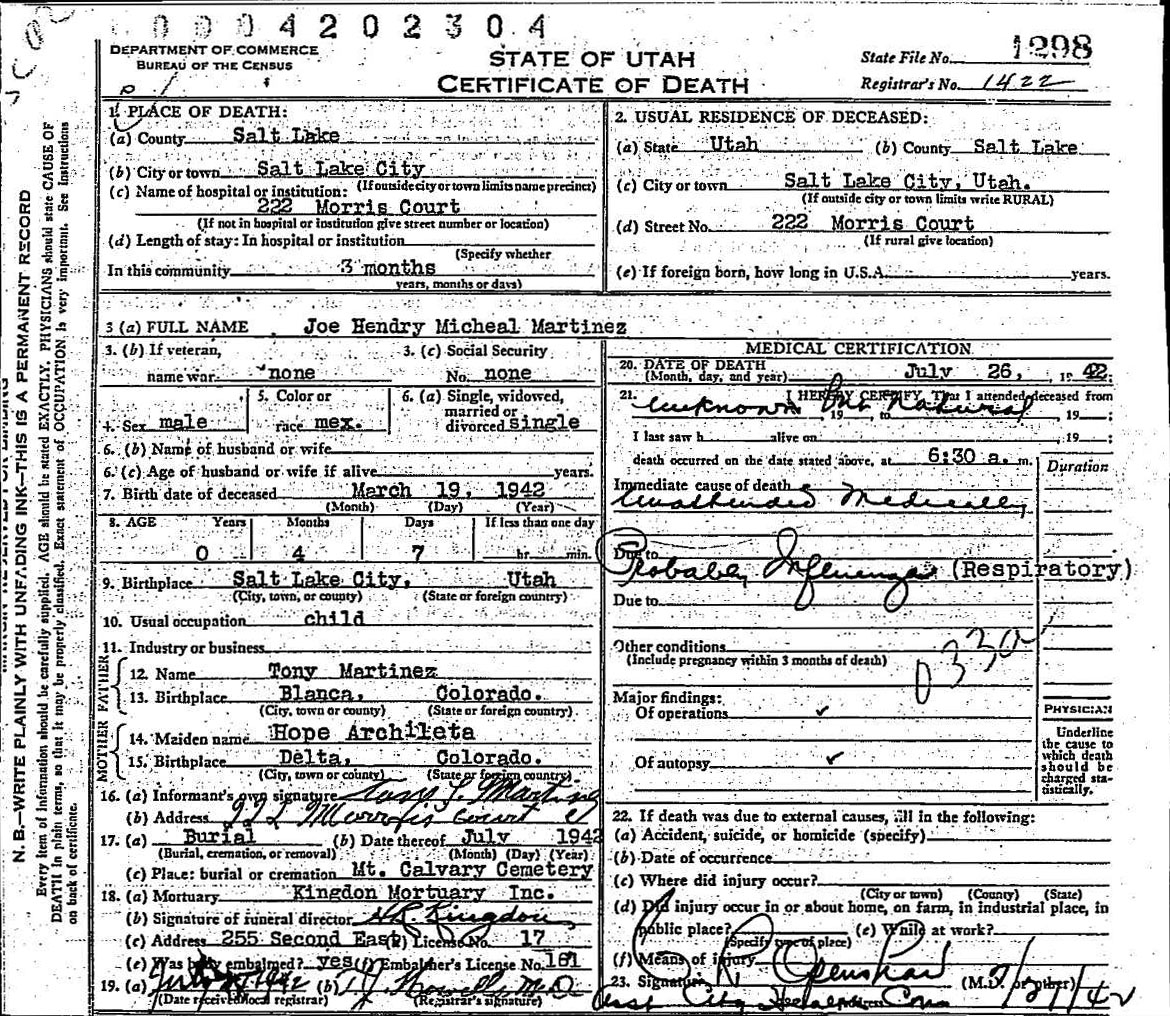 0004202304
DEPARTMENT OF COMMERCE
BUREAU OF THE CENSUS
STATE OF UTAH
CERTIFICATE OF DEATH
State File No. 1298
Registrar's No. 1422
1. PLACE OF DEATH:
(a) County Salt Lake
(b) City or town Salt Lake City
(If outside city or town limits name precinct)
(c) Name of hospital or institution:
222 Morris Court
(If not in hospital or institution give street number or location)
(d) Length of stay: In hospital or institution
(Specify whether
In this community 3 months
years, months or days)
2. USUAL RESIDENCE OF DECEASED:
(a) State Utah (b) County Salt Lake
(c) City or town Salt Lake City, Utah.
(If outside city or town limits write RURAL)
(d) Street No. 222 Morris Court
(If rural give location)
(e) If foreign born, how long in U.S.A. years.
3 (a) FULL NAME Joe Hendry Micheal Martinez
3. (b) If veteran,
name war none
3. (c) Social Security
No. none
4. Sex male
5. Color or
race mex.
6. (a) Single, widowed,
married or
divorced single
6. (b) Name of husband or wife
6. (c) Age of husband or wife if alive years.
7. Birth date of deceased March 19, 1942
(Month) (Day) (Year)
8. AGE Years Months Days If less than one day
0 4 7 hr. min.
9. Birthplace Salt Lake City, Utah
(City, town, or county) (State or foreign country)
10. Usual occupation child
11. Industry or business
FATHER
12. Name Tony Martinez
13. Birthplace Blanca, Colorado.
(City, town or county) (State or foreign country)
MOTHER
14. Maiden name Hope Archileta
15. Birthplace Delta, Colorado.
(City, town or county) (State or foreign country)
16. (a) Informant's own signature Tony J. Martinez
(b) Address 222 Morris Court
17. (a) Burial (b) Date thereof July 1942
(Burial, cremation, or removal) (Month) (Day) (Year)
(c) Place: burial or cremation Mt. Calvary Cemetery
18. (a) Mortuary Kingdon Mortuary Inc.
(b) Signature of funeral director Kingdon
(c) Address 255 Second East (d) License No. 17
(e) Was body embalmed? yes (f) Embalmer's License No. 161
19. (a) July 1942 (b) T. J. Howells M.D
(Date received local registrar) (Registrar's signature)
MEDICAL CERTIFICATION
20. DATE OF DEATH
(Month, day, and year) July 26, 1942
21. I HEREBY CERTIFY, That I attended deceased from
unknown but natural 19 to 19 ;
I last saw h alive on , 19 ;
death occurred on the date stated above, at 6:30 a. m.
Duration
Immediate cause of death
Unattended Medically
Due to
Probably Influenza (Respiratory)
Due to
Other conditions
(Include pregnancy within 3 months of death)
033a
Major findings:
Of operations ✓
Of autopsy ✓
PHYSICIAN
Underline
the cause to
which death
should be
charged sta-
tistically.
22. If death was due to external causes, fill in the following:
(a) Accident, suicide, or homicide (specify)
(b) Date of occurrence
(c) Where did injury occur?
(City or town) (County) (State)
(d) Did injury occur in or about home, on farm, in industrial place, in
public place? (e) While at work?
(Specify type of place)
(f) Means of injury
23. Signature Openshaw (M.D. or other)
Asst City Health Com 7/27/42
N. B.—WRITE PLAINLY WITH UNFADING INK—THIS IS A PERMANENT RECORD
Every item of information should be carefully supplied. AGE should be stated EXACTLY. PHYSICIANS should state CAUSE OF
DEATH in plain terms, so that it may be properly classified. Exact statement of OCCUPATION is very important. See Instructions
on back of certificate.